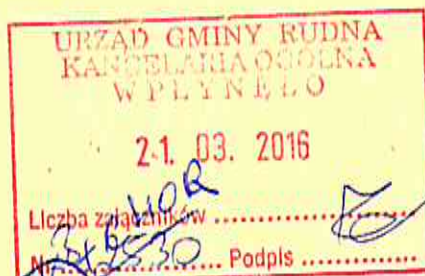 URZĄD GMINY RUDNA
KANCELARIA OGÓLNA
WPŁYNĘŁO
21. 03. 2016
Liczba załączników ..................
N.................. Podpis ..................